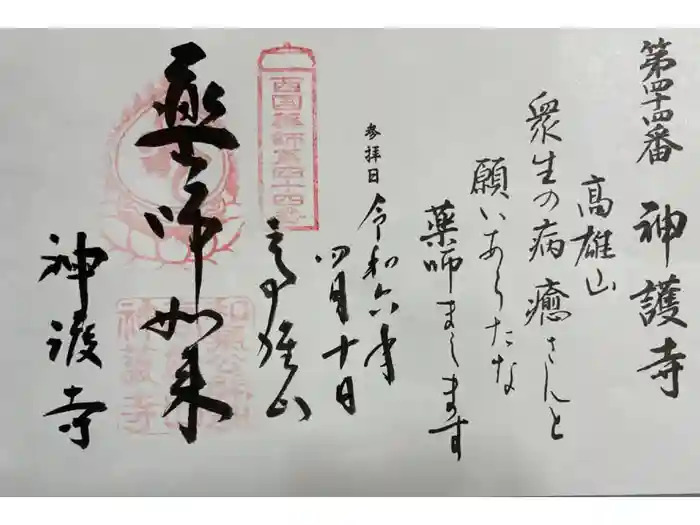 第四十四番 神護寺
高雄山
衆生の病 癒さんと
願いあらたな
薬師まします
参拝日 令和六年
四月十日
西国薬師第四十四番
高雄山
薬師如来
神護寺
神護寺